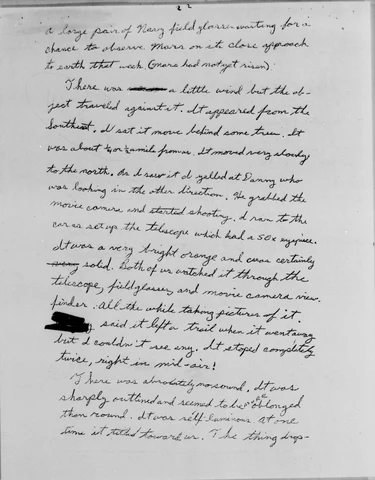 a large pair of Navy field glasses waiting for a
chance to observe Mars on its close approach
to earth that week. (mars had not yet risen)
There was a little wind but the ob-
ject traveled against it. It appeared from the
Southeast. I sat it move behind some trees. It
was about ¼ or ½ a mile from us. It moved very slowly
to the north. As I saw it I yelled at Danny who
was looking in the other direction. He grabbed the
movie camera and started shooting. I ran to the
car as set up the telescope which had a 50x eyepiece.
It was a very bright orange and was certainly
solid. Both of us watched it through the
telescope, field glasses, and movie camera view
finder. All the while taking pictures of it.
said it left a trail when it went away
but I couldn't see any. It stoped completely
twice, right in mid-air!
There was absolutely no sound. It was
sharply outlined and seemed to be oblonged
than round. It was self-luminous. At one
time it tilted toward us. The thing drop-